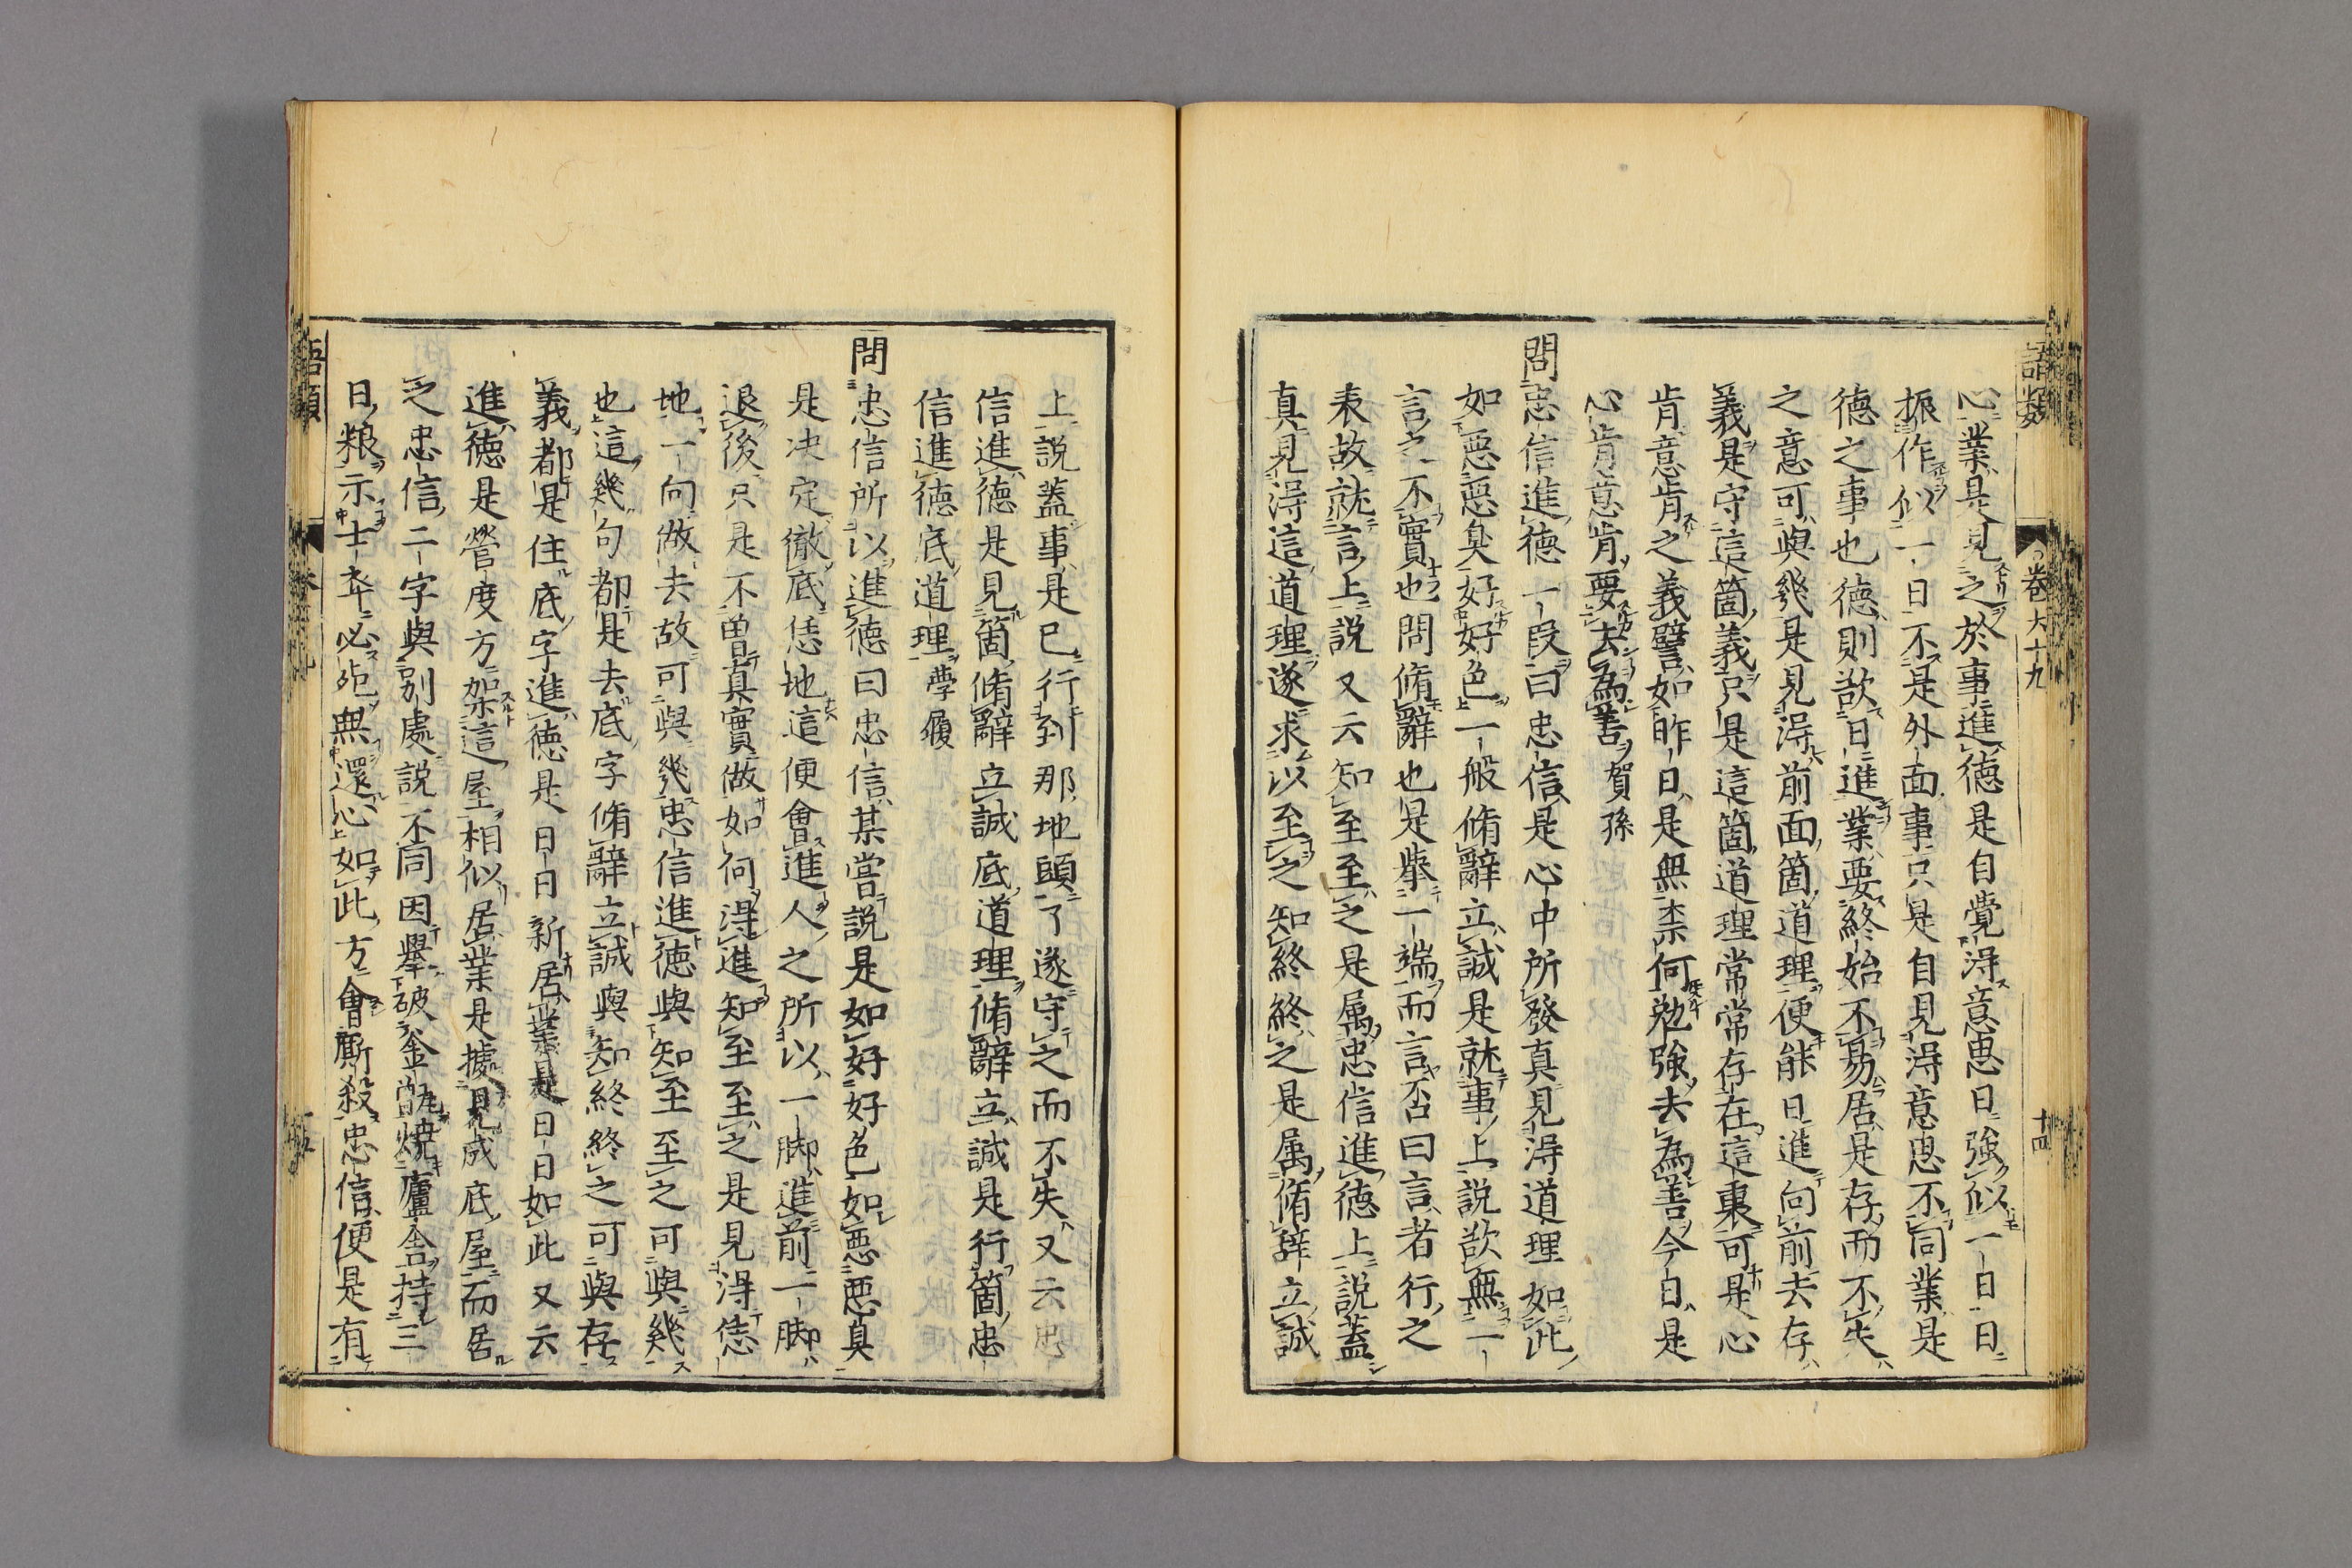 語類
卷六十九
十四
心業是見之於事進徳是自覺得意思日強似一日日
振作似一日不是外面事只是自見得意思不同業是
徳之事也徳則欲日進業要終始不易居是存而不失
之意可與幾是見得前面箇道理便能日進向前去存
義是守這箇義只是這箇道理常常存在這裏可是心
肯意肯之義譬如昨日是無柰何勉強去為善今日是
心肯意肯要去為善賀孫
問忠信進徳一段曰忠信是心中所發真見得道理如此
如惡惡臭好好色一般脩辭立誠是就事上說欲無一
言之不實也問脩辭也是舉一端而言否曰言者行之
表故就言上說又云知至至之是属忠信進徳上說蓋
真見得這道理遂求以至之知終終之是属脩辭立誠
上說蓋事是已行到那地頭了遂守之而不失又云忠
信進徳是見箇脩辭立誠底道理脩辭立誠是行箇忠
信進徳底道理孿履
問忠信所以進徳曰忠信某嘗說是如好好色如惡惡臭
是决定徹底恁地這便會進人之所以一脚進前一脚
退後只是不曽真實做如何得進知至至之是見得恁
地一向做去故可與幾忠信進徳與知至至之可與幾
也這幾句都是去底字脩辭立誠與知終終之可與存
義都是住底字進徳是日日新居業是日日如此又云
進徳是營度方架這屋相似居業是據見成底屋而居
之忠信二字與別處說不同因舉破釜甑燒廬舍持三
日粮示士卒必死無還心如此方會廝殺忠信便是有
語類